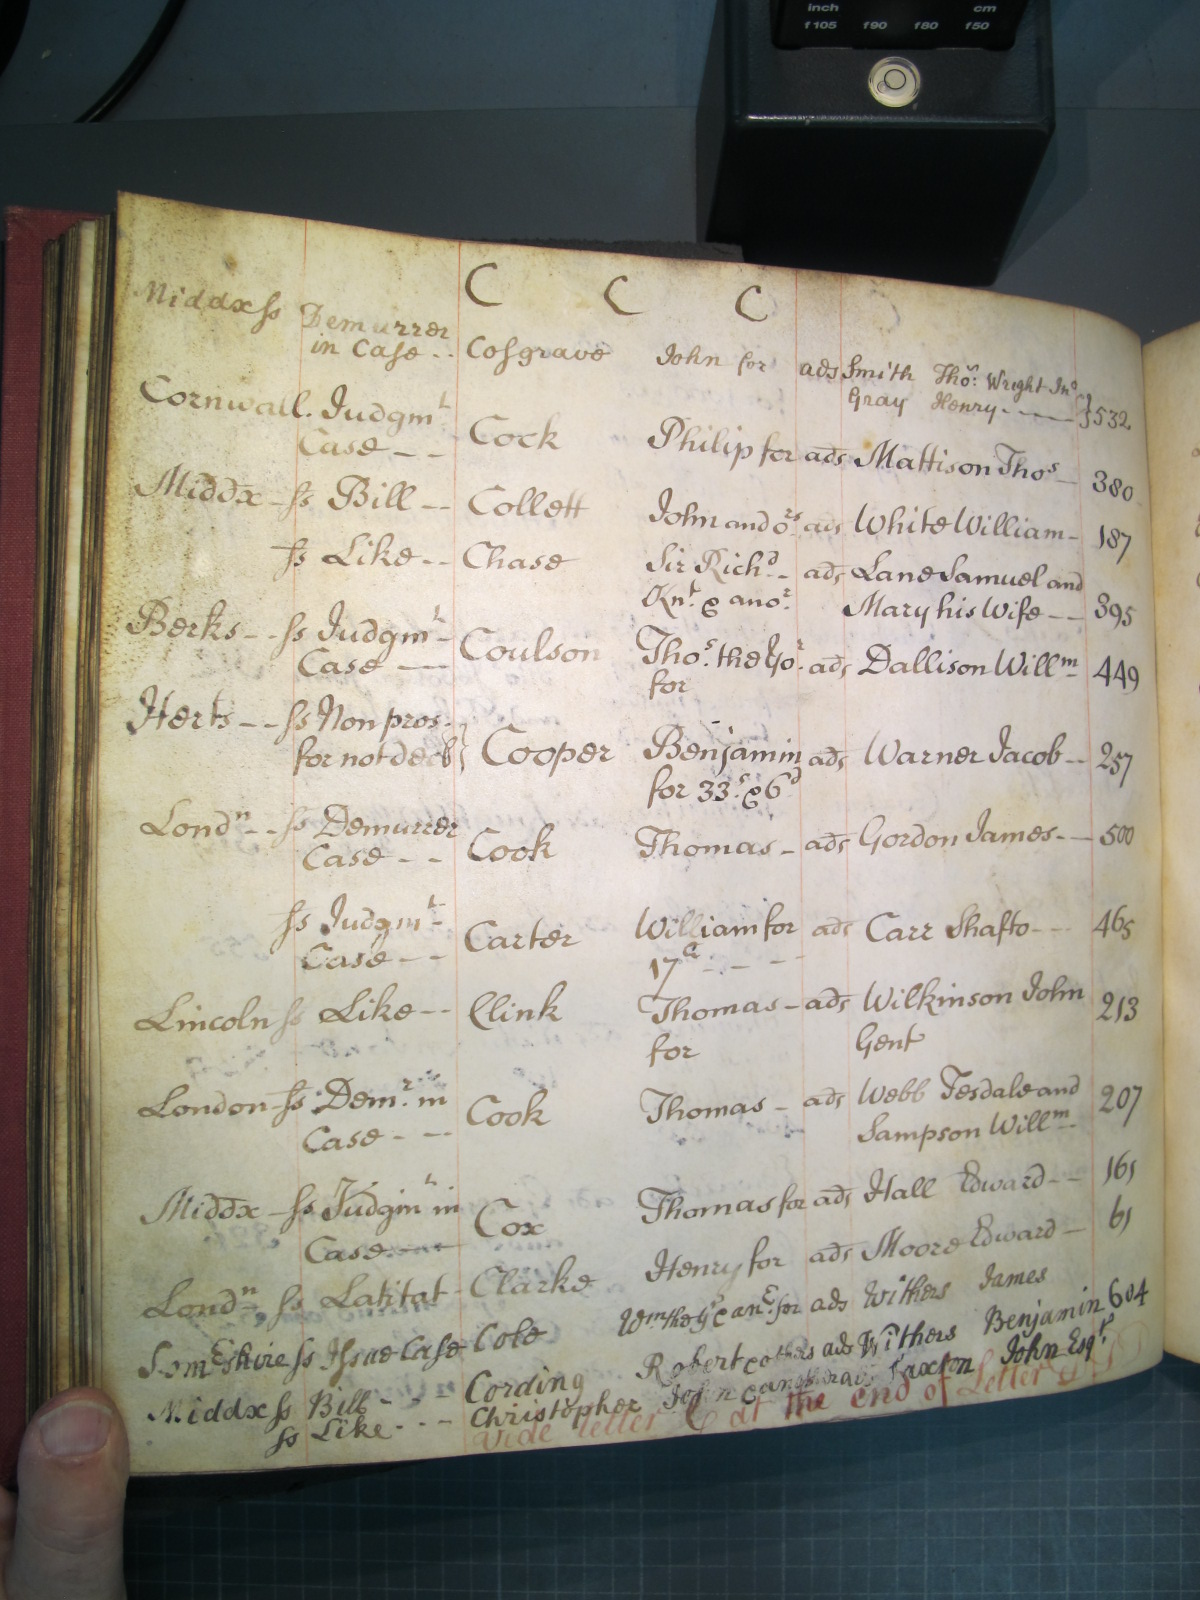 inch cm
f105 f90 f80 f50
C C C
Middx ss Demurrer
in Case -- Cosgrave John for ads Smith Thos. Wright Jno.
Gray Henry - - - } 532
Cornwall. Judgmt
Case - - Cock Philip for ads Mattison Thos - 380
Middx - ss Bill -- Collett John and ors. ads White William - 187
ss Like -- Chase Sir Richd. - ads Lane Samuel and
Knt. & anor. Mary his Wife -- 395
Berks -- ss Judgmt -
Case -- Coulson Thos. the Yor. ads Dallison Willm - 449
for
Herts -- ss Non pros.
for not decl } Cooper Benjamin ads Warner Jacob -- 257
for 33s. & 6d
Londn. -- ss Demurrer
Case - - Cook Thomas - ads Gordon James -- 500
ss Judgmt -
Case - - Carter William for ads Carr Shafto --- 465
17a - - -
Lincoln ss Like -- Clink Thomas - ads Wilkinson John 213
for Gent
London - ss Demr. in
Case - -- Cook Thomas - ads Webb Tesdale and 207
Sampson Willm -
Middx - ss Judgmt in
Case --- Cox Thomas for ads Hall Edward -- 161
Londn. ss Latitat - Clarke Henry for ads Moore Edward - 61
Somersetshire ss Issue Case Cole Wm the for ads Withers James
Middx ss Bill - - Cording Robert & others ads Withers Benjamin 604
ss Like - - - Christopher John & ads Caxton John Esqr
Vide letter C at the end of Letter